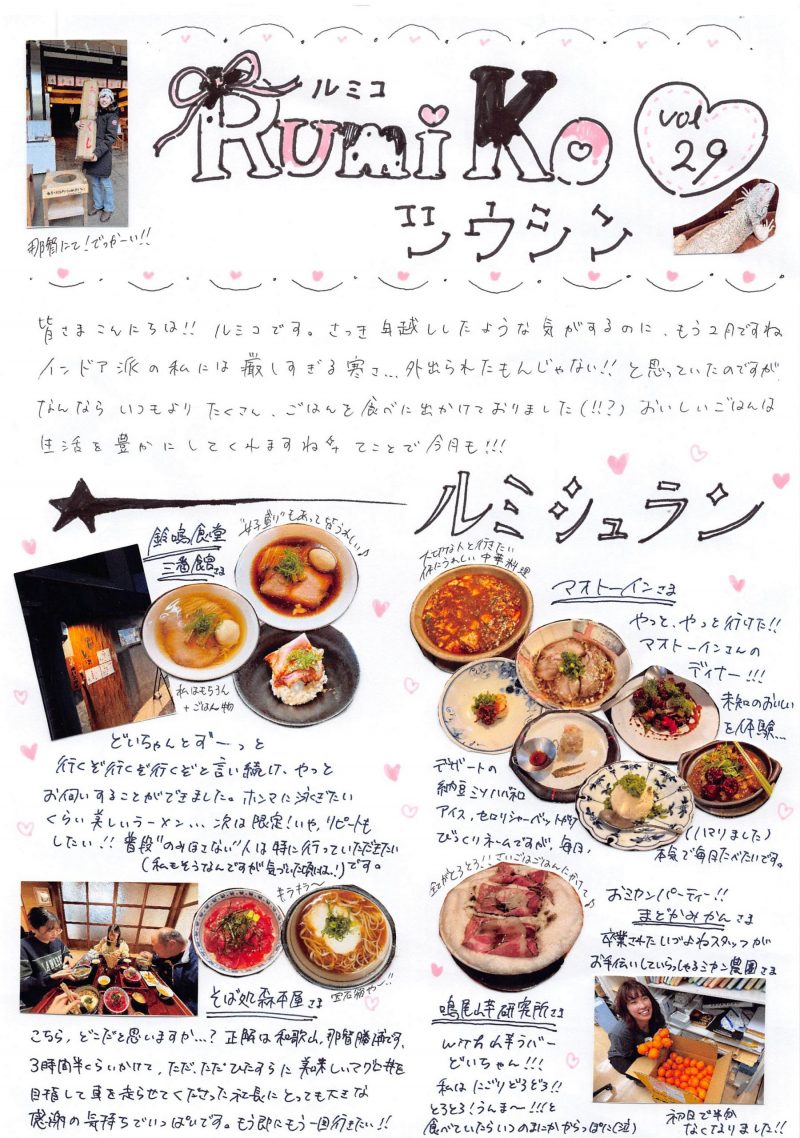 ルミコ
RumiKo
vol 29
ツウシン
那智にて!でっかーい!!
皆さまこんにちは!! ルミコです。さっき年越ししたような気がするのに、もう2月ですね
インドア派の私には厳しすぎる寒さ...外出られたもんじゃない!! と思っていたのですが
なんなら いつもより たくさん、ごはんを食べに出かけておりました(!!?) おいしいごはんは
生活を豊かにしてくれますね てことで今月も!!!
ルミシュラン
鈴鳴食堂
三番館さま
もあってうれしい♪
私はもちろん
+ごはん物
どいちゃんとずーっと
行くぞ行くぞ行くぞと言い続け、やっと
お伺いすることができました。ホンマに泳ぎたい
くらい美しいラーメン... 次は限定!いや、リピートも
したい!! 普段"のみほさない"人は特に行っていただきたい
(私もそうなんですが気づいた頃にはね!)です。
大切な人と行きたい
体にうれしい中華料理
マオトーインさま
やっと、やっと行けた!!
マオトーインさんの
ディナー!!!
未知のおいしい
を体験...
デザートの
納豆ミツバ和
アイス、セロリシャーベットが
びっくりネームですが、毎日、
(ハマりました)
本気で毎日たべたいです。
キラキラ〜
宝石箱や〜!!
そば処森本屋さま
こちら、どこだと思いますか...? 正解は和歌山、那智勝浦です。
3時間半くらいかけて、ただ、ただひたすらに美味しいマグロ丼を
目指して車を走らせてくださった社長にとっても大きな
感謝の気持ちでいっぱいです。もう即にもう一回行きたい!!
がとろとろ!!さいごはごはんにかけて♪
鳴尾山芋研究所さま
We are 山芋ラバー
どいちゃん!!!
私は にごりどろどろ!!
とろとろ!うんま〜!!!と
食べていたらいつのまにかからっぽに(泣)
おミカンパーティー!!
まどかみかんさま
卒業されたいづよねスタッフが
お手伝いしていらっしゃるミカン農園さま
初日で半分
なくなりました!!